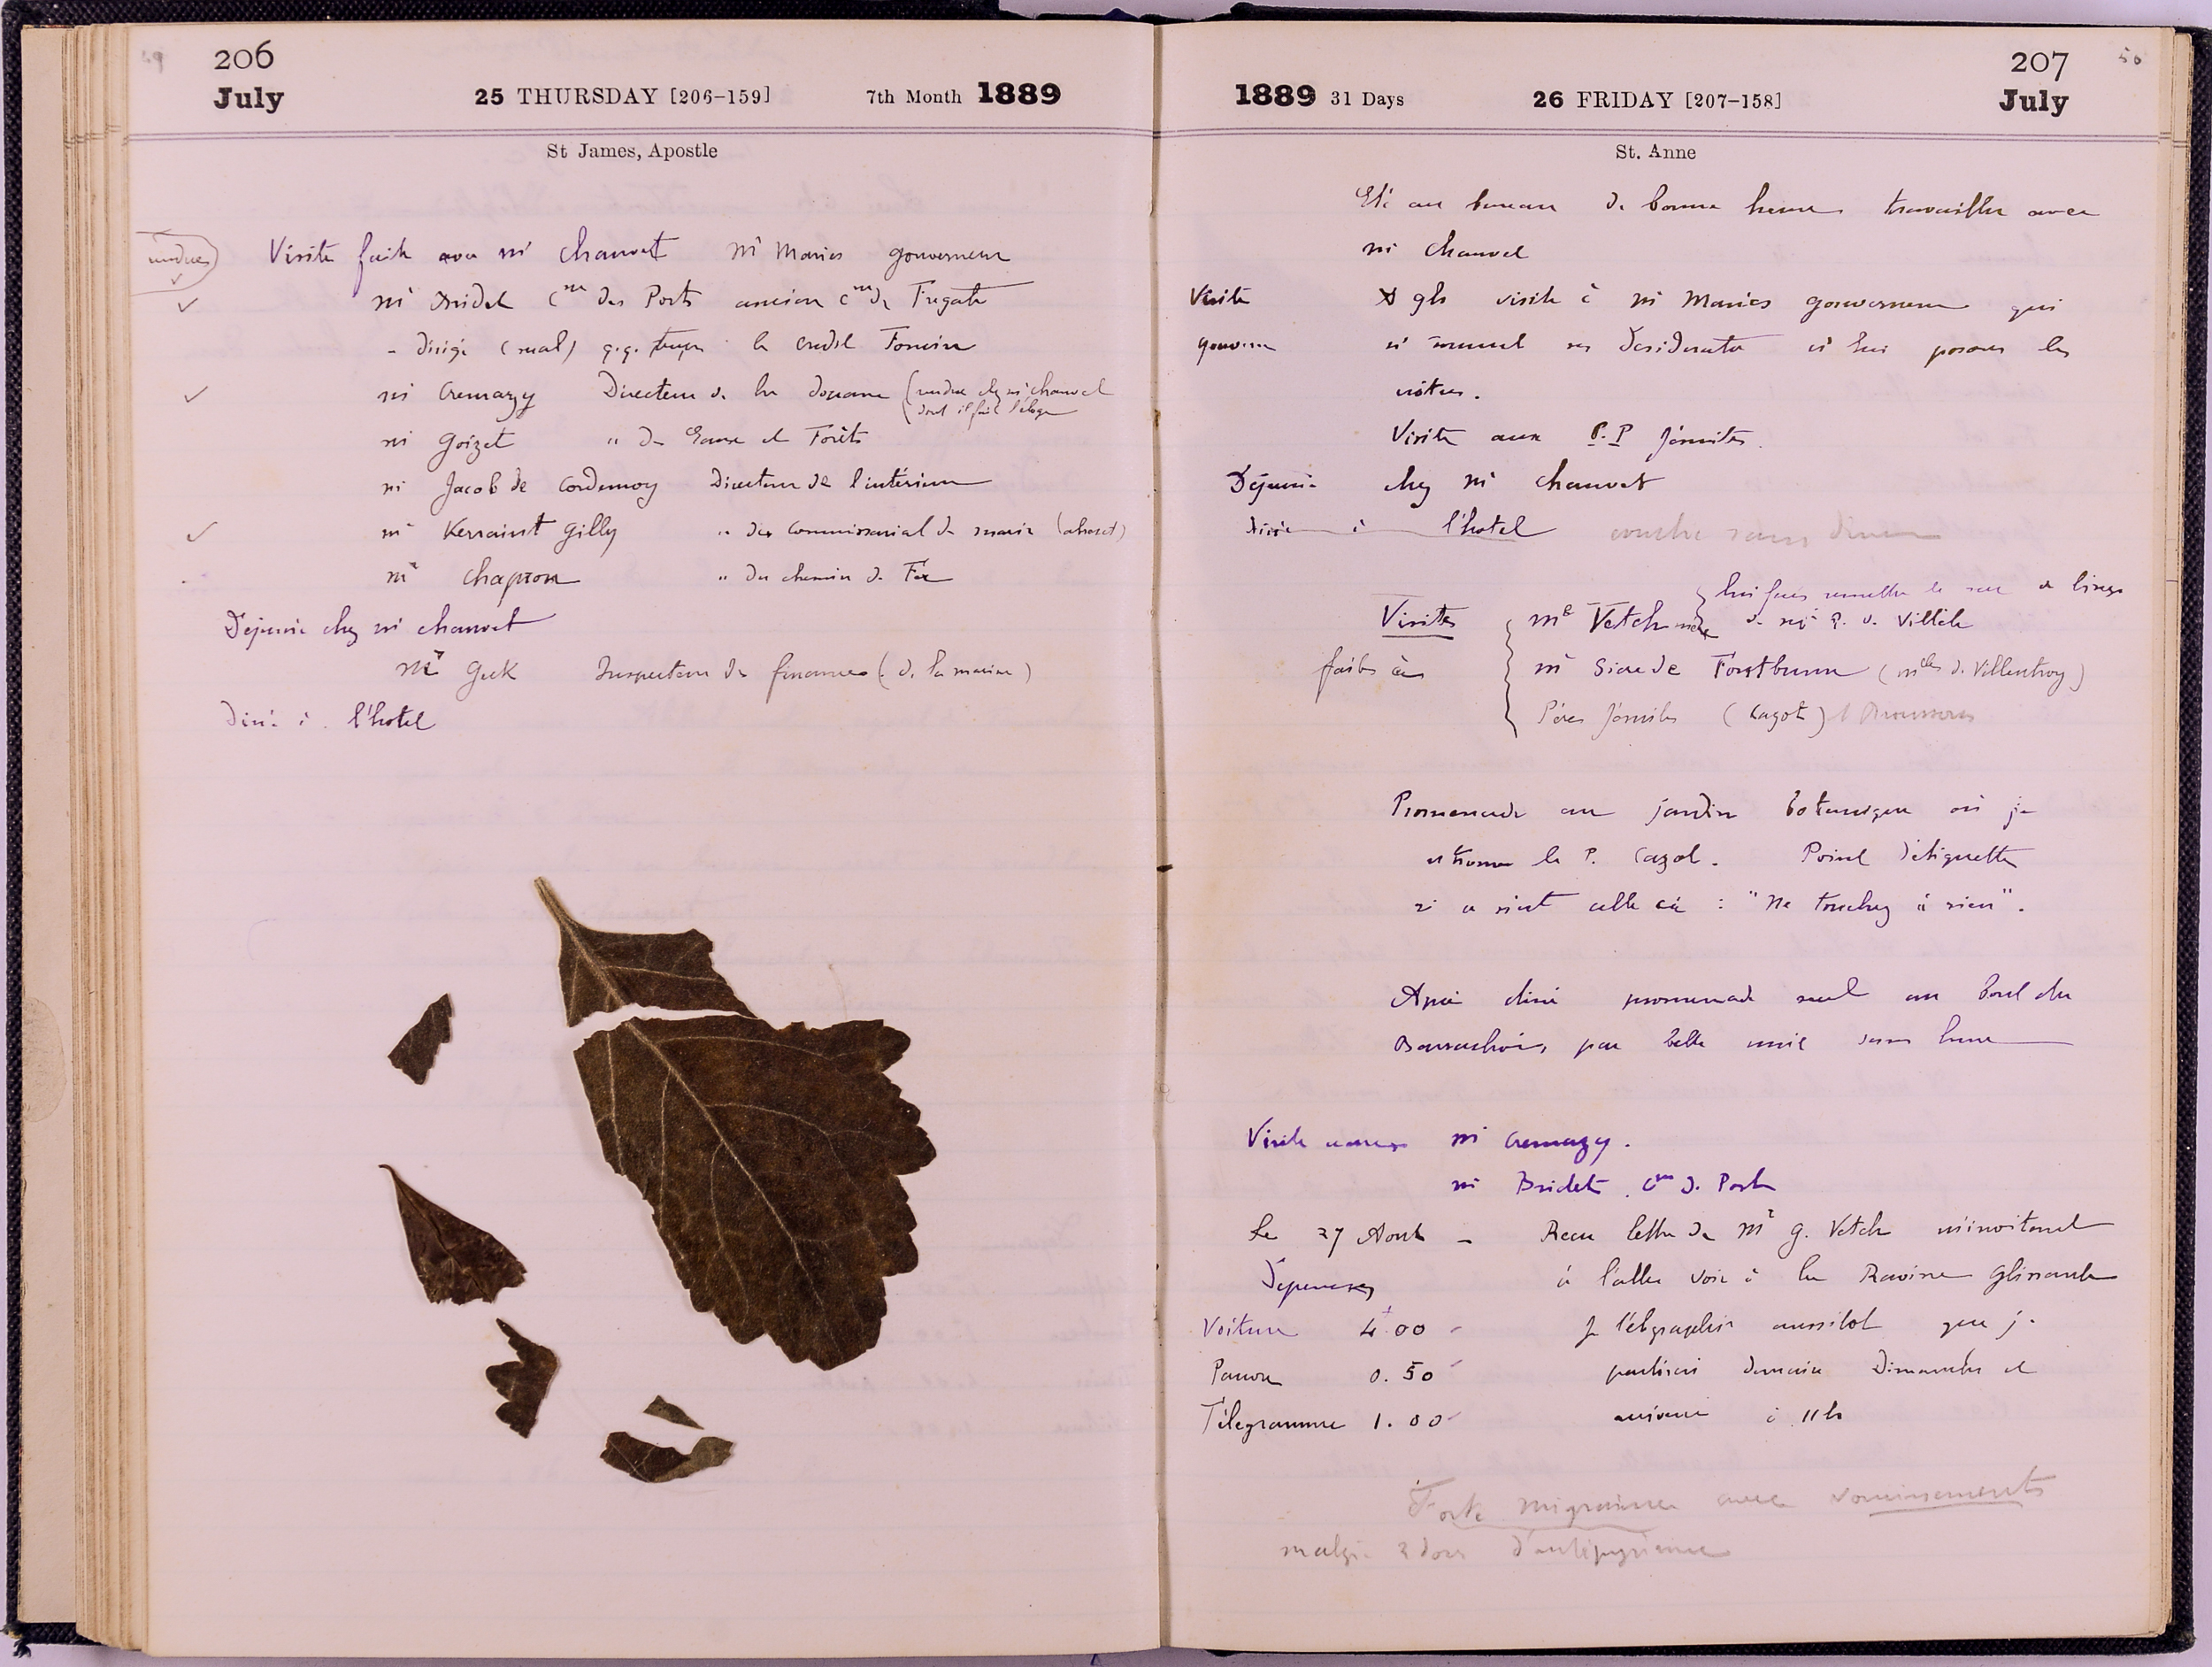 206
July
25 THURSDAY [206-159]
7th Month 1889
St James, Apostle
rendues
Visite faite avec Mr Chauvet Mr Manès gouverneur
Mr Bridet Cne des Ports ancien Cne de Fregate
- dirigé (mal) q.q. temps le Credit Foncier
Mr Cremazy Directeur de la douane (rendue chez Mr Chauvet
dont il fait l'éloge
Mr Goizet " des Eaux et Forêts
Mr Jacob de Cordemoy Directeur de l'intérieur
Mr Kerraint Gilly " du Commissariat de marine (absent)
Mr Chapron " du chemin de Fer
Déjeuné chez Mr Chauvet
Mr Guk Inspecteur des finances (de la marine)
Diné à l'hotel
207
July
1889 31 Days
26 FRIDAY [207-158]
St. Anne
50
Eté au bureau de bonne heure travailler avec
Mr Chauvet
Visite
gouverneur
visite à Mr Manès gouverneur qui
desiderata et lui posons les
nôtres.
Visite aux P.P Jésuites.
Déjeuné chez Mr Chauvet
Diné à l'hotel couché sans diner
Visites
faites à
lui fais remettre le sac de linge
Me Vetch mère de Mr R. de Villèle
Mr Siau de Fontbrune (Mlles de Villentroy)
Pères Jésuites (Cazot)
Promenade au jardin botanique où je
retrouve le P. Cazot. Point d'étiquette
si ce n'est celle ci : "Ne touchez à rien".
Après diné promenade seul au bout du
Barrachois, par belle nuit sans lune
Visite Mr Cremazy.
Mr Bridet Cne de Port
Le 27 Aout - Recu lettre de Mr G. Vetch m'invitant
à l'aller voir à la Ravine Glissante
Depenses
Je télégraphie aussitot que je
Voiture 4.00
partirai demain Dimanche et
0.50
arriverai à 11h
Télegramme 1.00
Forte migraine avec vomissements
malgré 2 doses d'antipyrine